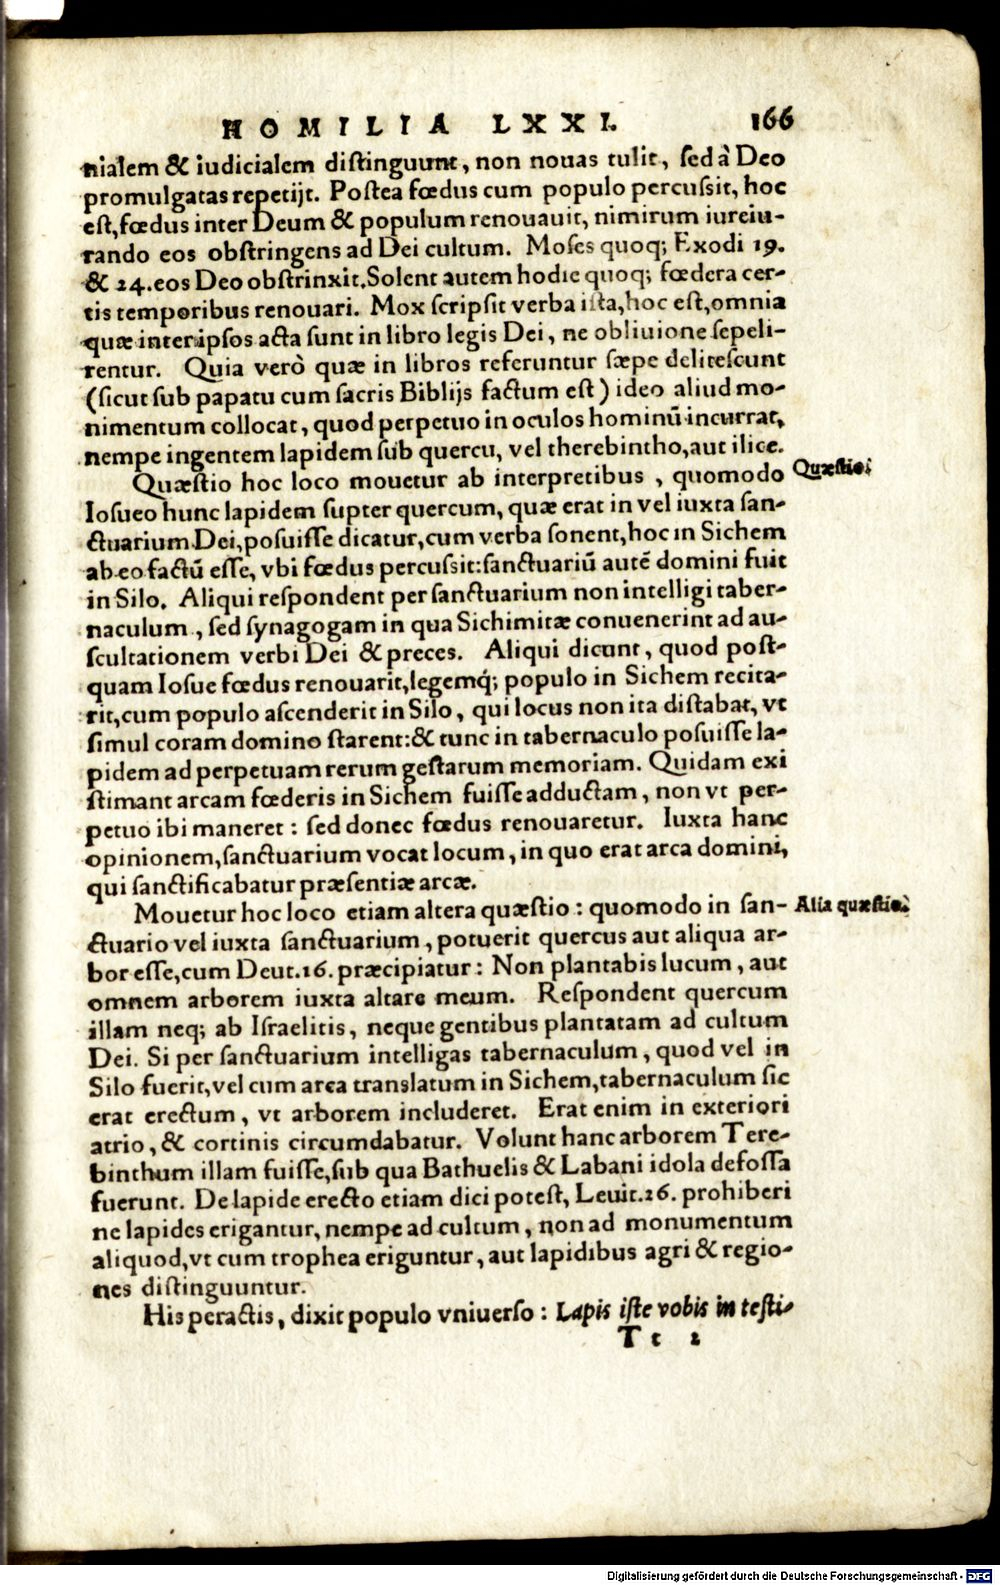 HOMILIA LXXI. 166
nialem & iudicialem distinguunt, non nouas tulit, sed à Deo
promulgatas repetijt. Postea fœdus cum populo percussit, hoc
est, fœdus inter Deum & populum renouauit, nimirum iureiu-
rando eos obstringens ad Dei cultum. Moses quoq; Exodi 19.
& 24. eos Deo obstrinxit. Solent autem hodie quoq; fœdera cer-
tis temporibus renouari. Mox scripsit verba ista, hoc est, omnia
quæ inter ipsos acta sunt in libro legis Dei, ne obliuione sepeli-
rentur. Quia verò quæ in libros referuntur sæpe delitescunt
(sicut sub papatu cum sacris Biblijs factum est) ideo aliud mo-
nimentum collocat, quod perpetuo in oculos hominū incurrat,
nempe ingentem lapidem sub quercu, vel therebintho, aut ilice.
Quæstio hoc loco mouetur ab interpretibus, quomodo
Quæstio.
Iosueo hunc lapidem supter quercum, quæ erat in vel iuxta san-
ctuarium Dei, posuisse dicatur, cum verba sonent, hoc in Sichem
ab eo factū esse, vbi fœdus percussit: sanctuariū autē domini fuit
in Silo. Aliqui respondent per sanctuarium non intelligi taber-
naculum, sed synagogam in qua Sichimitæ conuenerint ad au-
scultationem verbi Dei & preces. Aliqui dicunt, quod post-
quam Iosue fœdus renouarit, legemq́; populo in Sichem recita-
rit, cum populo ascenderit in Silo, qui locus non ita distabat, vt
simul coram domino starent: & tunc in tabernaculo posuisse la-
pidem ad perpetuam rerum gestarum memoriam. Quidam exi
stimant arcam fœderis in Sichem fuisse adductam, non vt per-
petuo ibi maneret: sed donec fœdus renouaretur. Iuxta hanc
opinionem, sanctuarium vocat locum, in quo erat arca domini,
qui sanctificabatur præsentiæ arcæ.
Mouetur hoc loco etiam altera quæstio: quomodo in san-
Alia quæstio.
ctuario vel iuxta sanctuarium, potuerit quercus aut aliqua ar-
bor esse, cum Deut. 16. præcipiatur: Non plantabis lucum, aut
omnem arborem iuxta altare meum. Respondent quercum
illam neq; ab Israelitis, neque gentibus plantatam ad cultum
Dei. Si per sanctuarium intelligas tabernaculum, quod vel in
Silo fuerit, vel cum arca translatum in Sichem, tabernaculum sic
erat erectum, vt arborem includeret. Erat enim in exteriori
atrio, & cortinis circumdabatur. Volunt hanc arborem Tere-
binthum illam fuisse, sub qua Bathuelis & Labani idola defossa
fuerunt. De lapide erecto etiam dici potest, Leuit. 26. prohiberi
ne lapides erigantur, nempe ad cultum, non ad monumentum
aliquod, vt cum trophea eriguntur, aut lapidibus agri & regio-
nes distinguuntur.
His peractis, dixit populo vniuerso: Lapis iste vobis in testi-
Tt 2
Digitalisierung gefördert durch die Deutsche Forschungsgemeinschaft - DFG